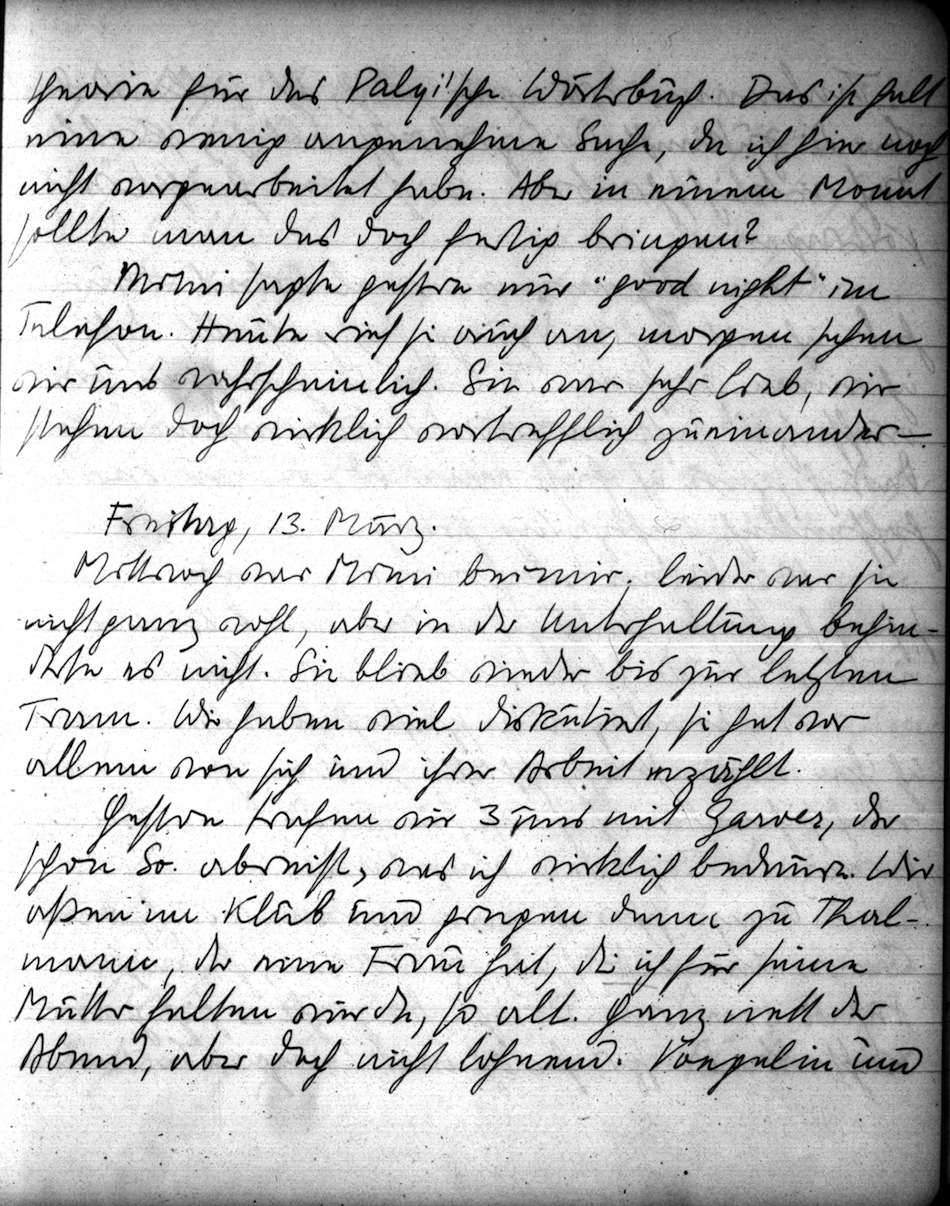 theorie für das Palyi'sche Wörterbuch. Das ist halt
eine wenig angenehme Sache, da ich hier noch
nicht vorgearbeitet habe. Aber in einem Monat
sollte man das doch fertig bringen?
Mimi sagte gestern nur "good night" im
Telefon. Heute rief sie auch an, morgen sehen
wir uns wahrscheinlich. Sie war sehr lieb, wir
stehen doch wirklich vortrefflich zueinander—.
Freitag, 13. März.
Mittwoch war Mimi bei mir, leider war sie
nicht ganz wohl, aber in der Unterhaltung behin-
derte es nicht. Sie blieb wieder bis zur letzten
Tram. Wir haben viel diskutiert, sie hat vor
allem von sich und ihrer Arbeit erzählt.
Gestern trafen wir 3 uns mit Garver, der
schon So. abreist, was ich wirklich bedaure. Wir
aßen im Klub und gingen dann zu Thal-
mann, der eine Frau hat, die ich für seine
Mutter halten würde, so alt. Ganz nett der
Abend, aber doch nicht lohnend. Voegelin und